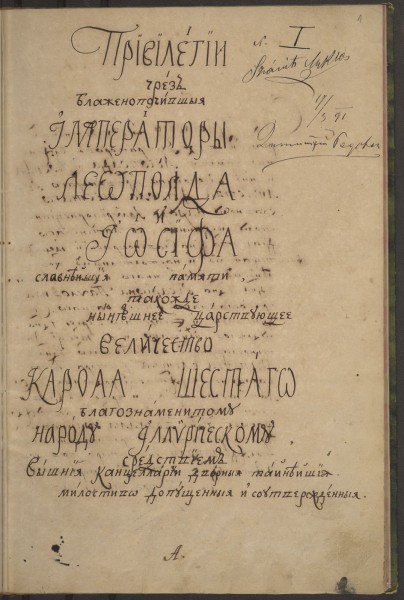 Прївїлегїи
чрезъ
блаженопочившыя
Їмператоры.
Леѡполда
и
Їѡсїфа
славнѣишїя памяти
такожде
нынѣшнее царствующее
величество
Карола шестагѡ
благознаменитому
народу їллѵрїческому
средствуемъ
вышнїя канцелларїи дворныя таинѣишїя
милостивѡ допущенныя и соутвержденныя.
А.
N. I
17/3 91